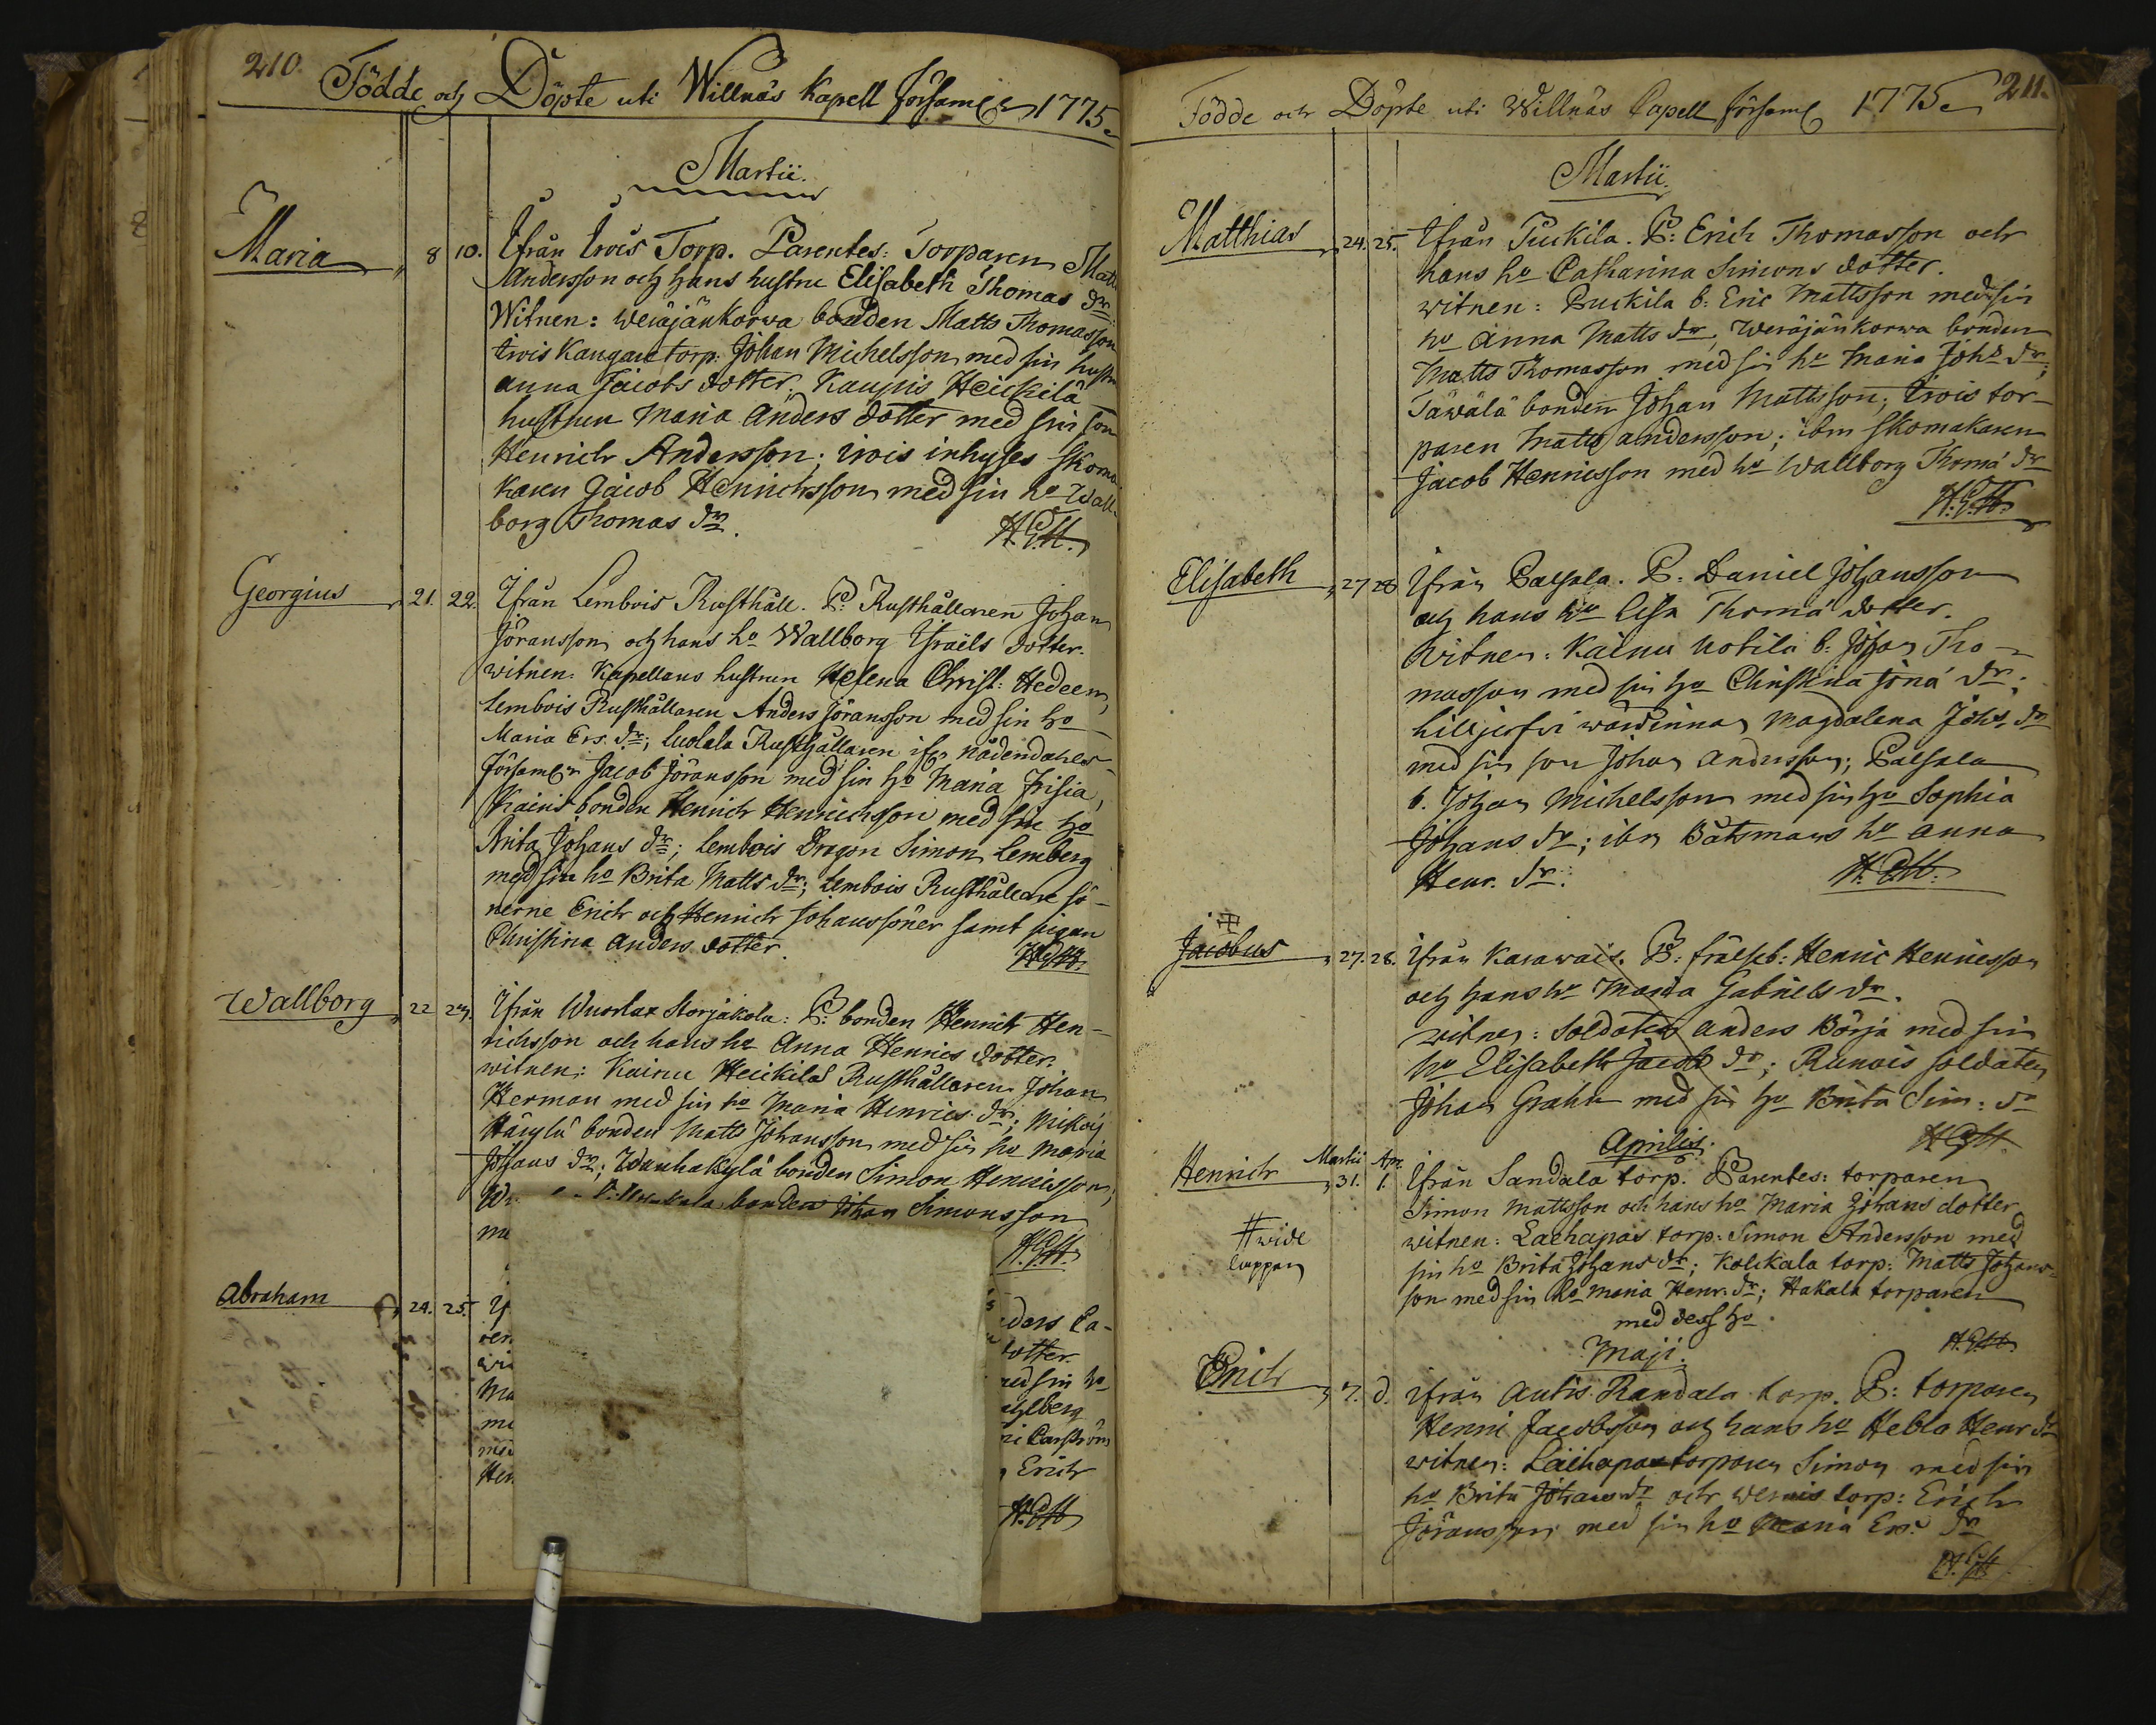 210.
Födde och Döpte uti Willnäs Kapell Församl 1775
Martii.
Maria 8 10. Ifrån Irois Torp. Parentes: Torparen Matts
Andersson och hans hustru Elisabeth Thomas dr
Witnen: Weräjänkorwa bonden Matts Thomasson
Irois Kangare torp: Johan Michelsson med sin hustru
Anna Jacobs dotter; Kaupis Heickilä
hustrun Maria Anders dotter med sin son
Henrich Andersson; irois inhyses Skoma-
karen Jacob Henrichsson med sin ho Wall-
borg Thomas dr.
Georgius 21. 22. Ifrån Lembois Rusthåll. P: Rusthållaren Johan
Jöransson och hans ho Wallborg Israels dotter.
witnen: Kapellans hustrun Helena Christ: Hedeen,
Lembois Rusthållaren Anders Jöransson med sin ho
Maria Ers. dr; Luolala Rusthållaren ifrn nådendahls
Församl Jacob Jöransson med sin ho Maria Frisia,
Kainis bonden Henrich Henrichsson med sin ho
Brita Johans dr; Lembois Dragon Simon Lemberg
med sin ho Brita Matts dr; Lembois Rusthållare sö-
nerne Erich och Henrich Johanssöner samt pigan
Christina Anders dotter.
Wallborg 22 24. Ifrån Wuorlax Storjakola: P: bonden Henrich Hen-
richsson och hans ho Anna Henrics dotter.
witnen: Kainu Heickilä Rusthållaren Johan
Herman med sin ho Maria Henrics dr; Mikois
Härylä bonden Matts Johansson med sin ho Maria
Johans dr; Wanhakylä bonden Simon Henricsson,
bonden Johan Simonsson
Abraham 24. 25.
ders Ca-
dotter.
med sin ho
ahlberg
Erich
211.
Födde och Döpte uti Willnäs Capell församl 1775
Martii.
Matthias 24. 25. Ifrån Puckila. P: Erich Thomasson och
hans ho Catharina Simons dotter.
witnen: Puckila b: Eric Mattsson med sin
ho Anna Matts dr, Weräjänkorwa bonden
Matts Thomasson med sin ho Maria Johs dr;
Täwälä bonden Johan Mattsson; Irois tor-
paren Matts Andersson; ibm Skomakaren
Jacob Henricsson med ho Wallborg Thomä dr
Elisabeth 27 28 Ifrån Palsala. P: Daniel Johansson
och hans ho Lisa Thomä dotter.
Witnen: Kainu Uotila b: Johan Tho-
masson med sin ho Christina Jöna dr;
wärdinnan Magdalena Johs dr
med sin son Johan Andersson; Palsala
b. Johan Michelsson med sin ho Sophia
Johans dr; ibm Båtsmans ho Anna
Henr. dr.
Jacobus 27. 28. Ifrån Karawais. P: frälseb: Henric Henricsson
och hans ho Maria Gabriels dr.
witnen: Soldaten Anders Börja med sin
ho Elisabeth Jacobs dr; Runois soldaten
Johan Grahn med sin ho Brita Sim: dr
Aprilis.
Henrich Martii 31. Apr. 1. Ifrån Sandala torp. Parentes: torparen
Simon Mattsson och hans ho Maria Johans dotter
witnen: Laehapas torp: Simon Andersson med
sin ho Brita Johans dr; Kolckala torp: Matts Johans-
son med sin ho Maria Henr. dr; Hakala torparen
med dess ho
# vide
lappen
Maji.
Erich 7. d. ifrån Autis Randala torp. P: torparen
Henric Jacobsson och hans ho Hebla Henr dr
witnen: Laehapas torparen Simon med sin
ho Brita Johans dr och Wernis torp: Erich
Jöransson med sin ho Maria Ers. dr